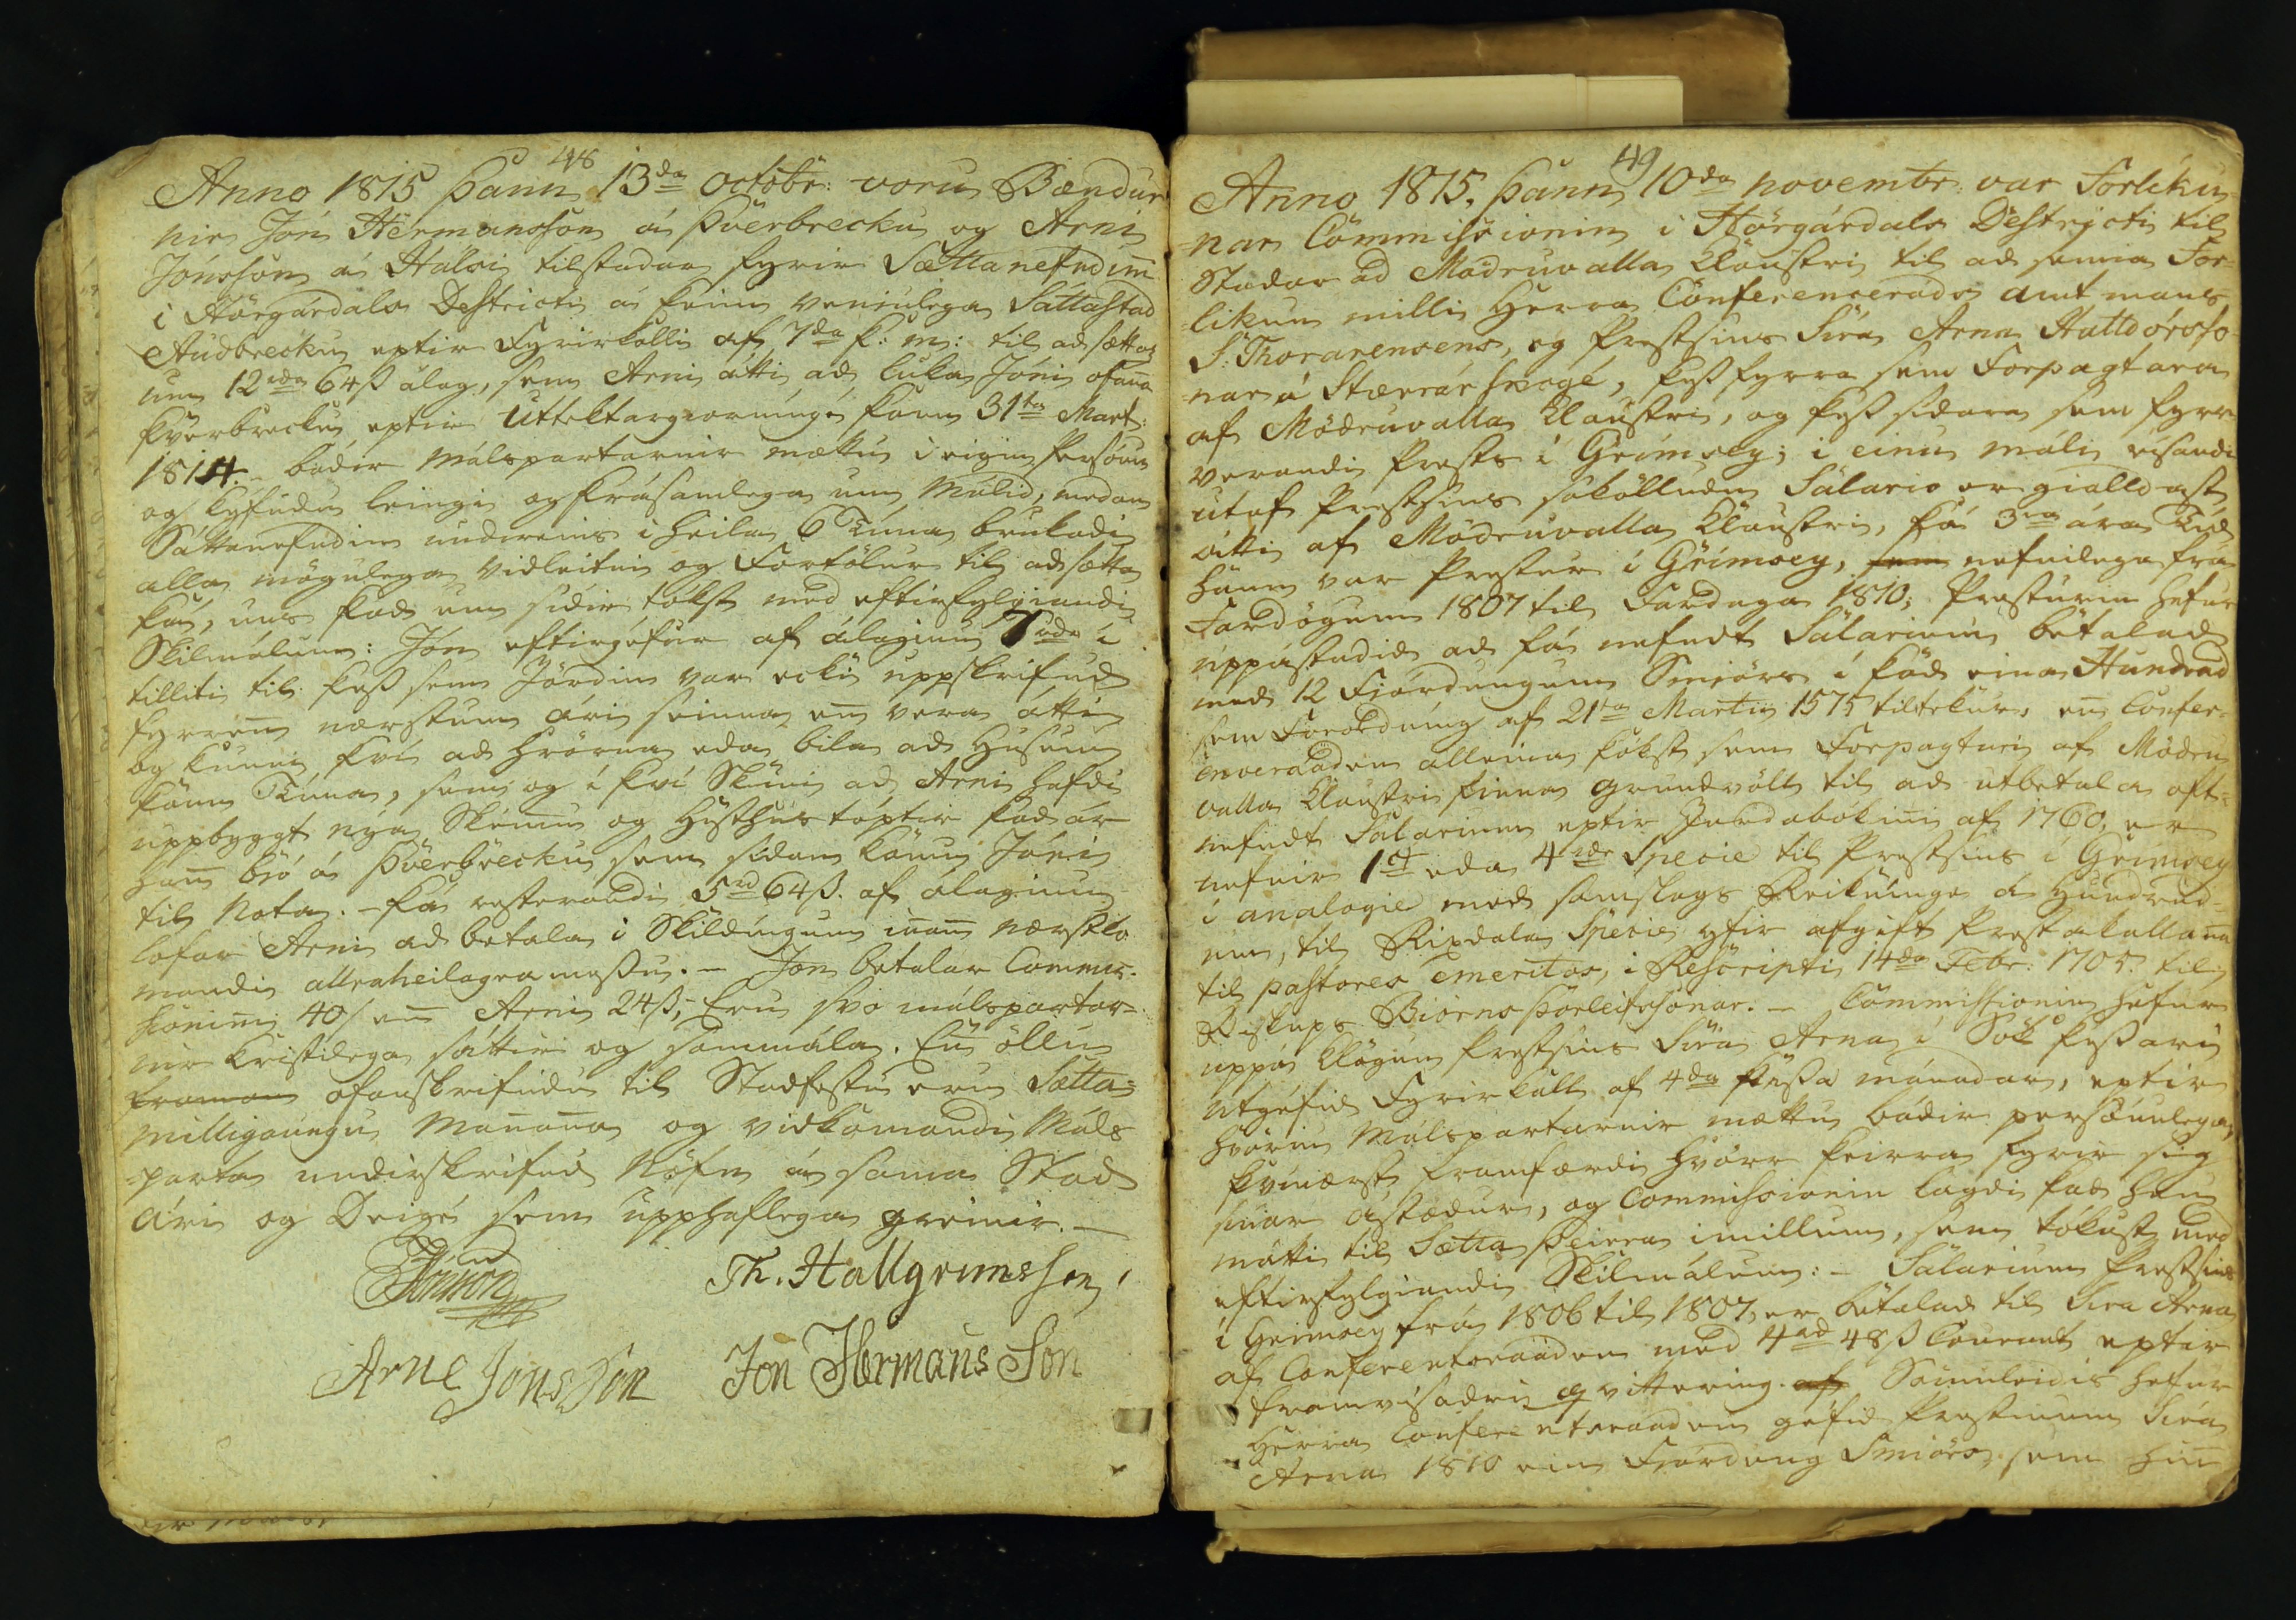 48
Anno 1815 þann 13da octobr: voru Bændur
nir Jón Hermansson á Þverbrecku og Arni
Jónsson á Hálsi tilstadar fyrir Sættanefndiñi
i Hörgárdals Destricti á þeim veniulega Sáttastad
Audbrecku eptir Fyrirkalli af 7da þ: m: til ad sættaz
um 12rda 64ß álag, sem Arni átti ad lúka Jóni ofaná
þverbrecku eptir Utttektargiorningi þann 31ta Marts:
1814. – badir Málspartarnir mættu i eigin Persónu
og þrefudu leingi og þrásamlega um Málid, medan
Sáttanefndin undireins i heila 6 Tíma brúkadi
alla mögulega vidleitni og Fortölur til ad sætta
þá, uns þad um sídir tókst med eftirfylgiandi
Skilmálum: Jón eftirgefur af álaginu 7rda í
tilliti til þess sem Jördin var ecki uppskrifud
fyrren nærstum ári seinna en vera átti
og kunni þvi ad hröрna eda bila ad Húsum
þann Tíma, sem og i þvi Skini ad Arni hafdi
uppbyggt nýa Skemmu og Hesthústóptir þad ár
hañ bió á Þverbrecku sem sídan komu Jóni
til Nota. – þá resterandi 5rd 64ß. af álaginu
lofar Arni ad betala i Skildingum iñañ nærstko
mandi allraheilagramessu. – Jón betalar Commis-
sioniñi 40ß en Arni 24ß, – Eru svo málspartar-
nir kristilega sáttir og sammála. Eñ öllu
framan ofanskrifudu til Stadfestu eru Sætta-
milligaungu Mañaña og vidkomandi Máls
-parta undirskrifud Nöfn á sama Stad
Ári og Deigi sem upphaflega greinir. –
Th. Hallgrimsson
Arne Jons Son Jon Hermans Son
49
Anno 1815, þann 10da novembr: var Forliku
nar Commissionin i Hörgárdals Destricti til
Stadar ad Mödruvalla Klaustri til ad semia For-
likun milli Herra Conferenceráds amtmans
S. Thorarensens, og Prestsins Sira Arna Halldórsso
nar á Stærraárskogi, þess fyrra sem Forpagtara
af Mödruvalla Klaustri, og þess sídara sem fyrr-
verandi Prests i Grímsey; i einu máli rísandi
útaf Prestsins sokölludu Salario er gialldast
átti af Mödruvalla Klaustri, þá 3ia ára Tíd
hann var Prestur i Grímsey, sem nefnilega frá
Fardögum 1807 til Fardaga 1810; Presturin hefur
uppástadid ad fá nefndt Salarium betalad
med 12 Fiórdungum Smiörs i þad eina Hundrad
sem Forordning af 21ta Martii 1575 tiltekur, eñ Confer-
enceraaden alleina þókst sem Forpagtari af Mödru
valla Klaustri finna grundvöll til ad utbetala oft-
nefndt Salarium eptir Jardabókiñi af 1760, er
nefnir 1 eda 4rdr Specie til Prestsins i Grimsey
i analogie med samslags Reikninge á Hundrad-
inu, til Rixdala Specie yfir afgift Prestakallaña
til pastores emeritos, i Rescripti 14da Febr: 1705 til
Biskups Biörns Þorleifssonar. – Commissionin hefur
uppá Klögun Prestsins Sira Arna i Sök þessari
utgefid Fyrirkall af 4da þessa mánadar, eptir
hvörju Málspartarnir mættu bádir persónulega,
þvinærst framfærdi hvörr þeirra fyrir sig
sinar ástædur, og Commissionin lagdi þad hun
mátti til Sætta þeirra imillum, sem tókust med
eftirfylgiandi Skilmálum: – Salarium Prestsins
i Grimsey frá 1806 til 1807, er betalad til Sira Arna
af Conferenceraaden med 4rd 48ß Courant eptir
framvísadri qvittering. af Sömuleidis hefur
Herra Conferenceraaden géfid Prestinum Sira
Arna 1810 ein Fiórdung Smiörs sem hiñ